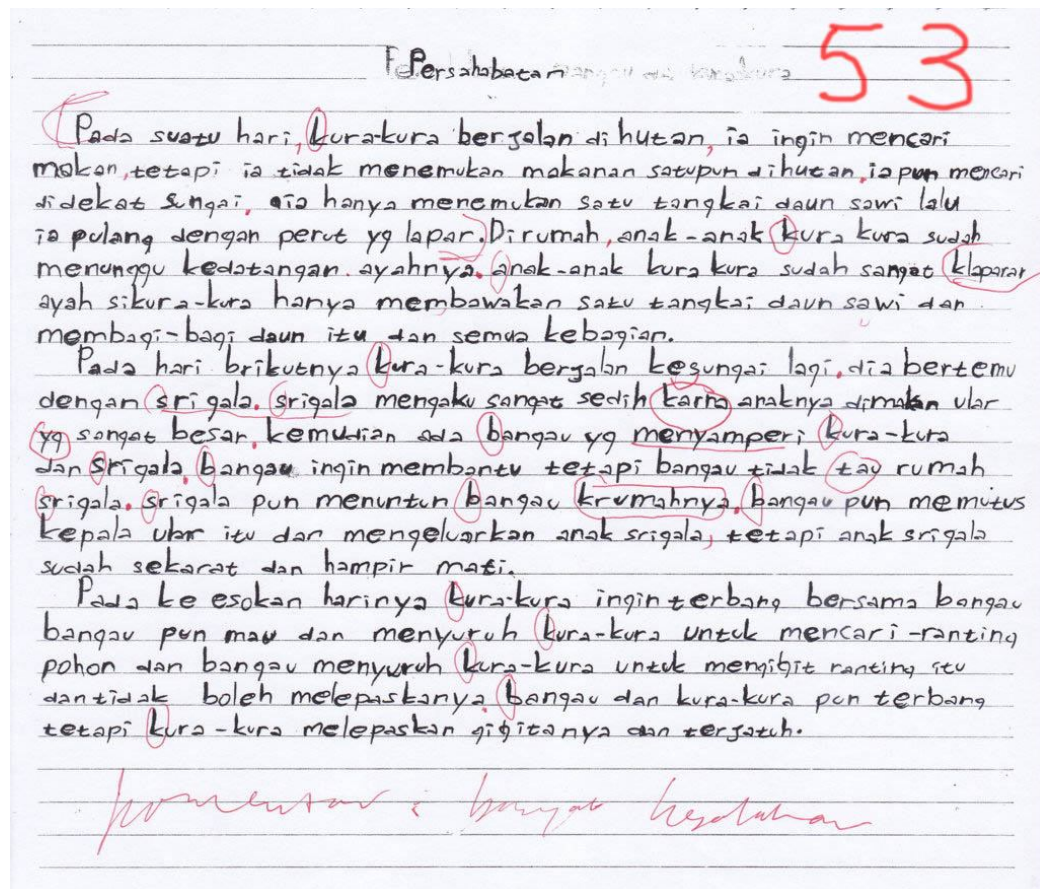 53
Persahabatan
Pada suatu hari, kura-kura berjalan di hutan, ia ingin mencari
makan, tetapi ia tidak menemukan makanan satupun dihutan, ia pun mencari
didekat sungai, ia hanya menemukan satu tangkai daun sawi lalu
ia pulang dengan perut yg lapar. Dirumah, anak-anak kura kura sudah
menunggu kedatangan ayahnya. anak-anak kura kura sudah sangat klaparan
ayah sikura-kura hanya membawakan satu tangkai daun sawi dan
membagi-bagi daun itu dan semua kebagian.
Pada hari brikutnya kura-kura berjalan kesungai lagi, dia bertemu
dengan srigala. srigala mengaku sangat sedih karna anaknya dimakan ular
yg sangat besar. kemudian ada bangau yg menyamperi kura-kura
dan srigala. bangau ingin membantu tetapi bangau tidak tau rumah
srigala. srigala pun menuntun bangau krumahnya. bangau pun memutus
kepala ular itu dan mengeluarkan anak srigala, tetapi anak srigala
sudah sekarat dan hampir mati.
Pada ke esokan harinya kura-kura ingin terbang bersama bangau
bangau pun mau dan menyuruh kura-kura untuk mencari-ranting
pohon dan bangau menyuruh kura-kura untuk mengigit ranting itu
dan tidak boleh melepaskanya. bangau dan kura-kura pun terbang
tetapi kura-kura melepaskan gigitanya dan terjatuh.
komentar : banyak kesalahan